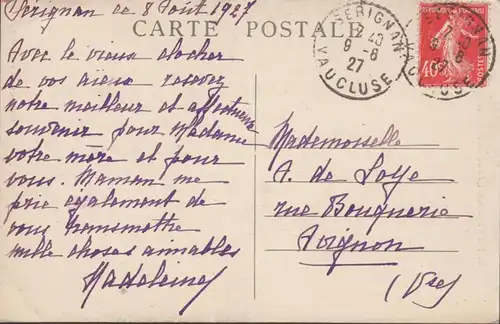 Sérignan ce 8 Août 1927
CARTE POSTALE
Avec le vieux clocher
de vos aïeux recevez
notre meilleur et affectueux
souvenir pour Madame
votre mère et pour
vous. Maman me
prie également de
vous transmettre
mille choses aimables
Madeleine
SERIGNAN
12 40
9 - 8
27
VAUCLUSE
40c
POSTES
Mademoiselle
A. de Loye
rue Bouquerie
Avignon
(Vse)